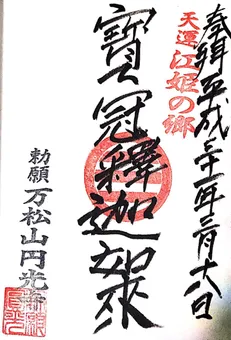 奉拝 平成三十一年三月十八日
天運 江姫の郷
寶冠釋迦如來
勅願 万松山円光寺